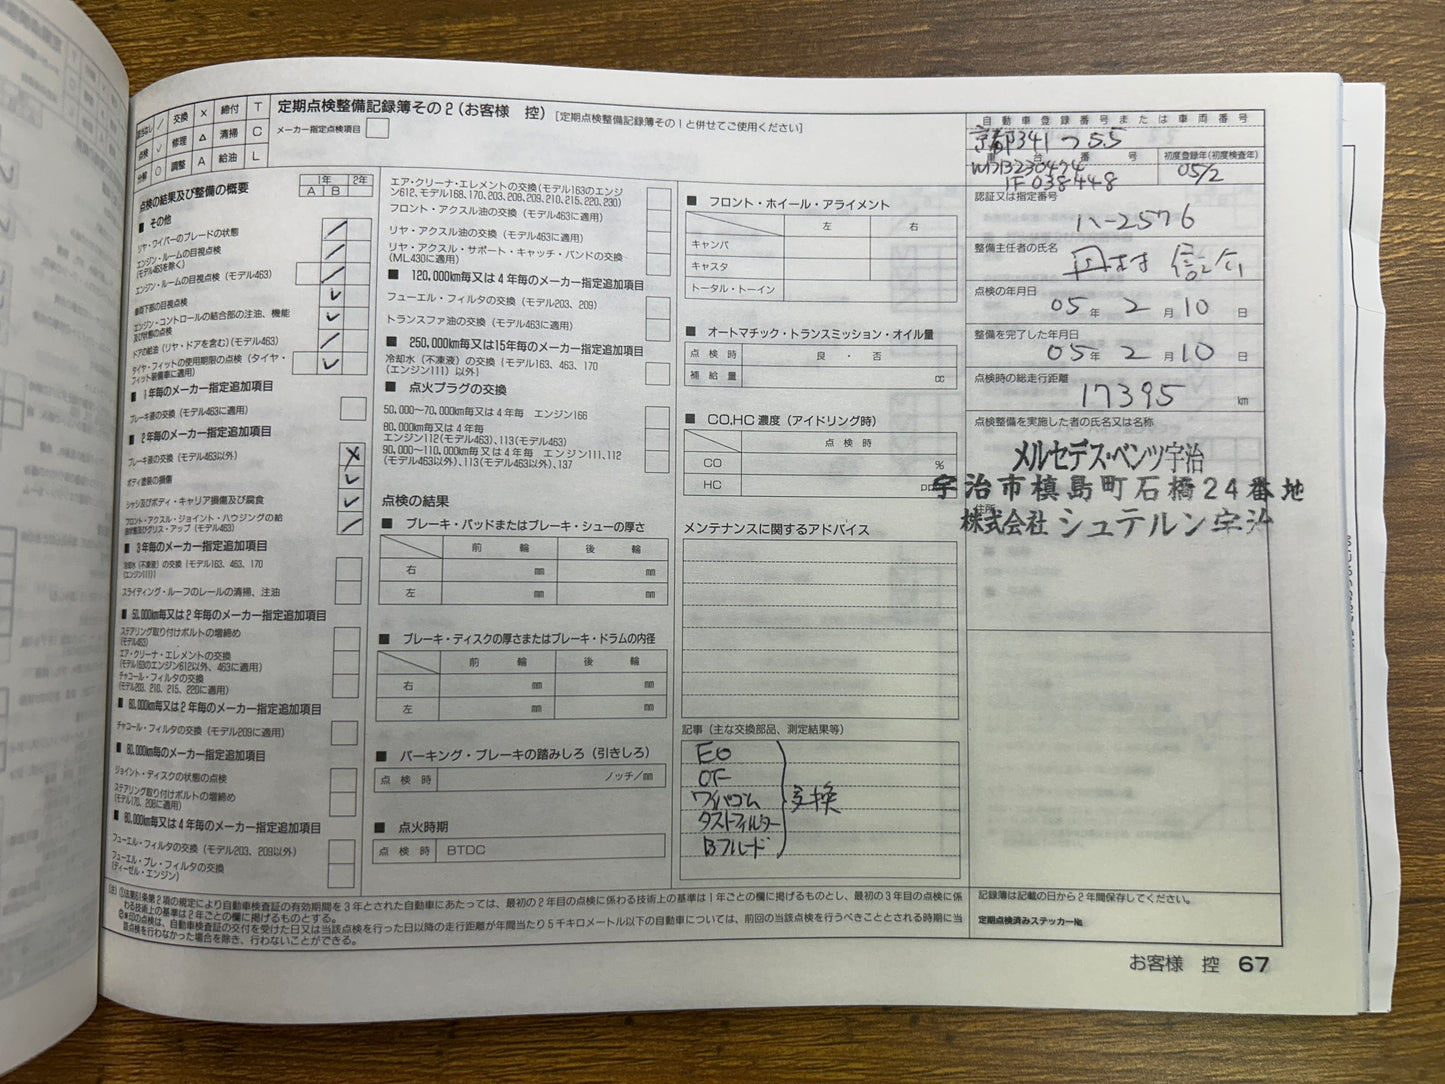 該当なし / 交換 × 締付 T
点検 ✓ 修理 △ 清掃 C
分解 ○ 調整 A 給油 L
定期点検整備記録簿その2(お客様 控)[定期点検整備記録簿その1と併せてご使用ください]
メーカー指定点検項目
点検の結果及び整備の概要
1年 2年
A B
■ その他
リヤ・ワイパーのブレードの状態
エンジン・ルームの目視点検
(モデル463を除く)
エンジン・ルームの目視点検(モデル463)
車両下部の目視点検
エンジン・コントロールの結合部の注油、機能
及び状態の点検
ドアの給油(リヤ・ドアを含む)(モデル463)
タイヤ・フィットの使用期限の点検(タイヤ・
フィット装備車に適用)
■ 1年毎のメーカー指定追加項目
ブレーキ液の交換(モデル463に適用)
■ 2年毎のメーカー指定追加項目
ブレーキ液の交換(モデル463以外)
ボディ塗装の損傷
シャシ及びボディ・キャリア損傷及び腐食
フロント・アクスル・ジョイント・ハウジングの給
脂状態及びグリス・アップ(モデル463)
■ 3年毎のメーカー指定追加項目
冷却水(不凍液)の交換(モデル163、463、170
(エンジン111))
スライディング・ルーフのレールの清掃、注油
■ 50,000km毎又は2年毎のメーカー指定追加項目
ステアリング取り付けボルトの増締め
(モデル463)
エア・クリーナ・エレメントの交換
(モデル163のエンジン612以外、463に適用)
チャコール・フィルタの交換
(モデル203、210、215、220に適用)
■ 60,000km毎又は2年毎のメーカー指定追加項目
チャコール・フィルタの交換(モデル209に適用)
■ 60,000km毎のメーカー指定追加項目
ジョイント・ディスクの状態の点検
ステアリング取り付けボルトの増締め
(モデル170、208に適用)
■ 60,000km毎又は4年毎のメーカー指定追加項目
フューエル・フィルタの交換(モデル203、209以外)
フューエル・プレ・フィルタの交換
(ディーゼル・エンジン)
エア・クリーナ・エレメントの交換(モデル163のエンジ
ン612、モデル168、170、203、208、209、210、215、220、230)
フロント・アクスル油の交換(モデル463に適用)
リヤ・アクスル油の交換(モデル463に適用)
リヤ・アクスル・サポート・キャッチ・バンドの交換
(ML430に適用)
■ 120,000km毎又は4年毎のメーカー指定追加項目
フューエル・フィルタの交換(モデル203、209)
トランスファ油の交換(モデル463に適用)
■ 250,000km毎又は15年毎のメーカー指定追加項目
冷却水(不凍液)の交換(モデル163、463、170
(エンジン111)以外)
■ 点火プラグの交換
50,000〜70,000km毎又は4年毎 エンジン166
80,000km毎又は4年毎
エンジン112(モデル463)、113(モデル463)
90,000〜110,000km毎又は4年毎 エンジン111、112
(モデル463以外)、113(モデル463以外)、137
点検の結果
■ ブレーキ・パッドまたはブレーキ・シューの厚さ
前 輪 後 輪
右 mm mm
左 mm mm
■ ブレーキ・ディスクの厚さまたはブレーキ・ドラムの内径
前 輪 後 輪
右 mm mm
左 mm mm
■ パーキング・ブレーキの踏みしろ(引きしろ)
点検時 ノッチ/mm
■ 点火時期
点検時 BTDC
■ フロント・ホイール・アライメント
左 右
キャンバ
キャスタ
トータル・トーイン
■ オートマチック・トランスミッション・オイル量
点検時 良・否
補給量 cc
■ CO,HC濃度(アイドリング時)
点検時
CO %
HC ppm
メンテナンスに関するアドバイス
記事(主な交換部品、測定結果等)
EO
OF
ワイパゴム
ダストフィルター
Bフルード
交換
自動車登録番号または車両番号
京都341つ55
車台番号 初度登録年(初度検査年)
W1N3230474
1F038448
05/2
認証又は指定番号
ハ-2576
整備主任者の氏名
点検の年月日
05年 2月10日
整備を完了した年月日
05年 2月10日
点検時の総走行距離
17395 km
点検整備を実施した者の氏名又は名称
メルセデス・ベンツ宇治
宇治市槙島町石橋24番地
住所
株式会社 シュテルン宇治
(注)①法第61条第2項の規定により自動車検査証の有効期間を3年とされた自動車にあたっては、最初の2年目の点検に係わる技術上の基準は1年ごとの欄に掲げるものとし、最初の3年目の点検に係
わる技術上の基準は2年ごとの欄に掲げるものとする。
②※印の点検は、自動車検査証の交付を受けた日又は当該点検を行った日以降の走行距離が年間当たり5千キロメートル以下の自動車については、前回の当該点検を行うべきこととされる時期に当
該点検を行わなかった場合を除き、行わないことができる。
記録簿は記載の日から2年間保存してください。
定期点検済みステッカー№
お客様 控 67